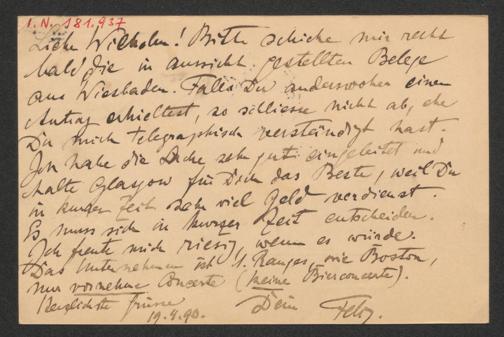 I.N. 181.937
Liebe Wilhelm! Bitte schicke mir recht
bald die in aussicht gestellten Belege
aus Wiesbaden. Falls Du anderswoher einen
Antrag erhieltest, so schliesse nicht ab, ehe
Du mich telegraphisch verständigt hast.
Ich habe die Sache sehr gut eingeleitet und
halte Glasgow für Dich das Beste, weil Du
in kurzer Zeit sehr viel Geld verdienst.
Es muss sich in kurzer Zeit entscheiden.
Ich freute mich riesig, wenn es würde.
Das Unternehmen ist 1. Ranges, wie Boston,
nur vornehme Concerte (keine Bierconcerte).
Herzlichste Grüsse Dein Felix.
19.4.90.